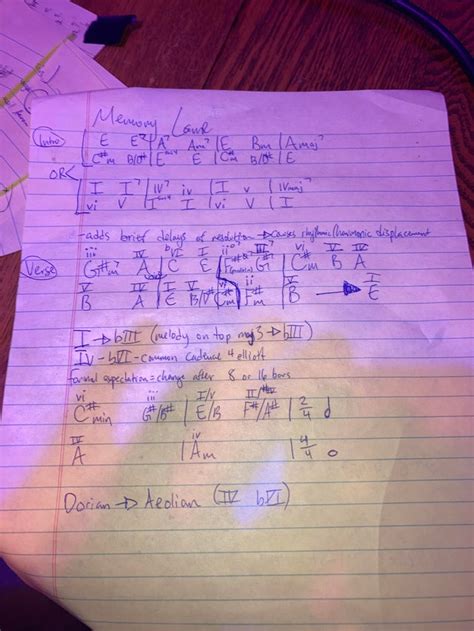 Memory Lane
Intro E E7 | A7 Am7 | E Bm | Amaj7
C#m B/D# | Esus4 E | C#m B/D# | E
OR
I I7 | IV7 iv | I v | IVmaj7
vi V | Isus4 I | vi V | I
-adds brief delays of resolution → causes rhythmic/harmonic displacement
iii IV bVI I ii° III7 vi V IV
Verse G#m7 A | C E | G# | C#m B A
V IV I V vi ii V I
B A | E B/D# C#m | F#m | B → E
I → bIII (melody on top maj3 → bIII)
IV - bVI - common cadence 4 elliott
Formal expectation = change after 8 or 16 bars
vi iii I/V
C#min G#/B# | E/B F#/A# | 2/4
IV iv
A | Am | 4/4
Dorian → Aeolian (IV bVI)